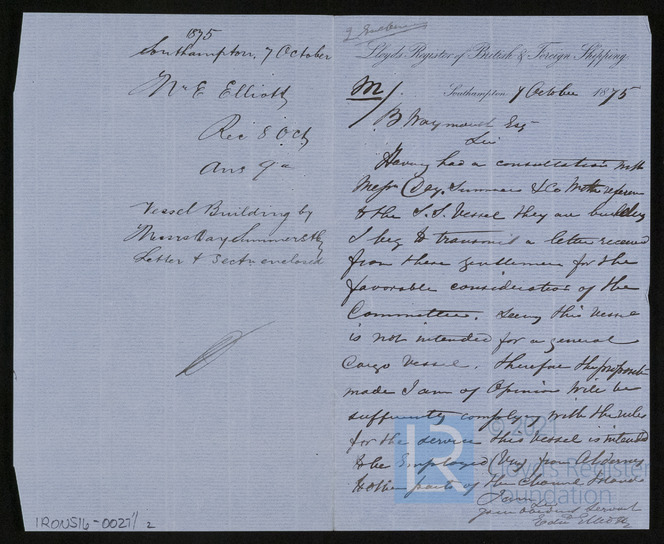 1875
Southampton, 7 October
Mr E Elliott
Rec 8 Oct
Ans 9th
Vessel Building by
Messrs Day Summers & Co
Letter & Sectn enclosed
2 Enclosures
Lloyds Register of British & Foreign Shipping.
M/ Southampton 7 October 1875
B Waymouth Esq
Sir
Having had a consultation with
Messrs Day. Summers & Co With reference
to the S.S. Vessel they are building
I beg to transmit a letter received
from these gentlemen for the
favorable consideration of the
Committee. Seeing this Vessel
is not intended for a general
Cargo Vessel. therefore the proposals
made I am of Opinion will be
sufficently complying with the rules
for the service this Vessel is intended
to be Employed (Viz) from Alderney
to other parts of the Channel Islands
I am Sir
your obedient Servant
Edw Elliott
IRON516-0027/2
LR
© 2021
Lloyd's Register
Foundation